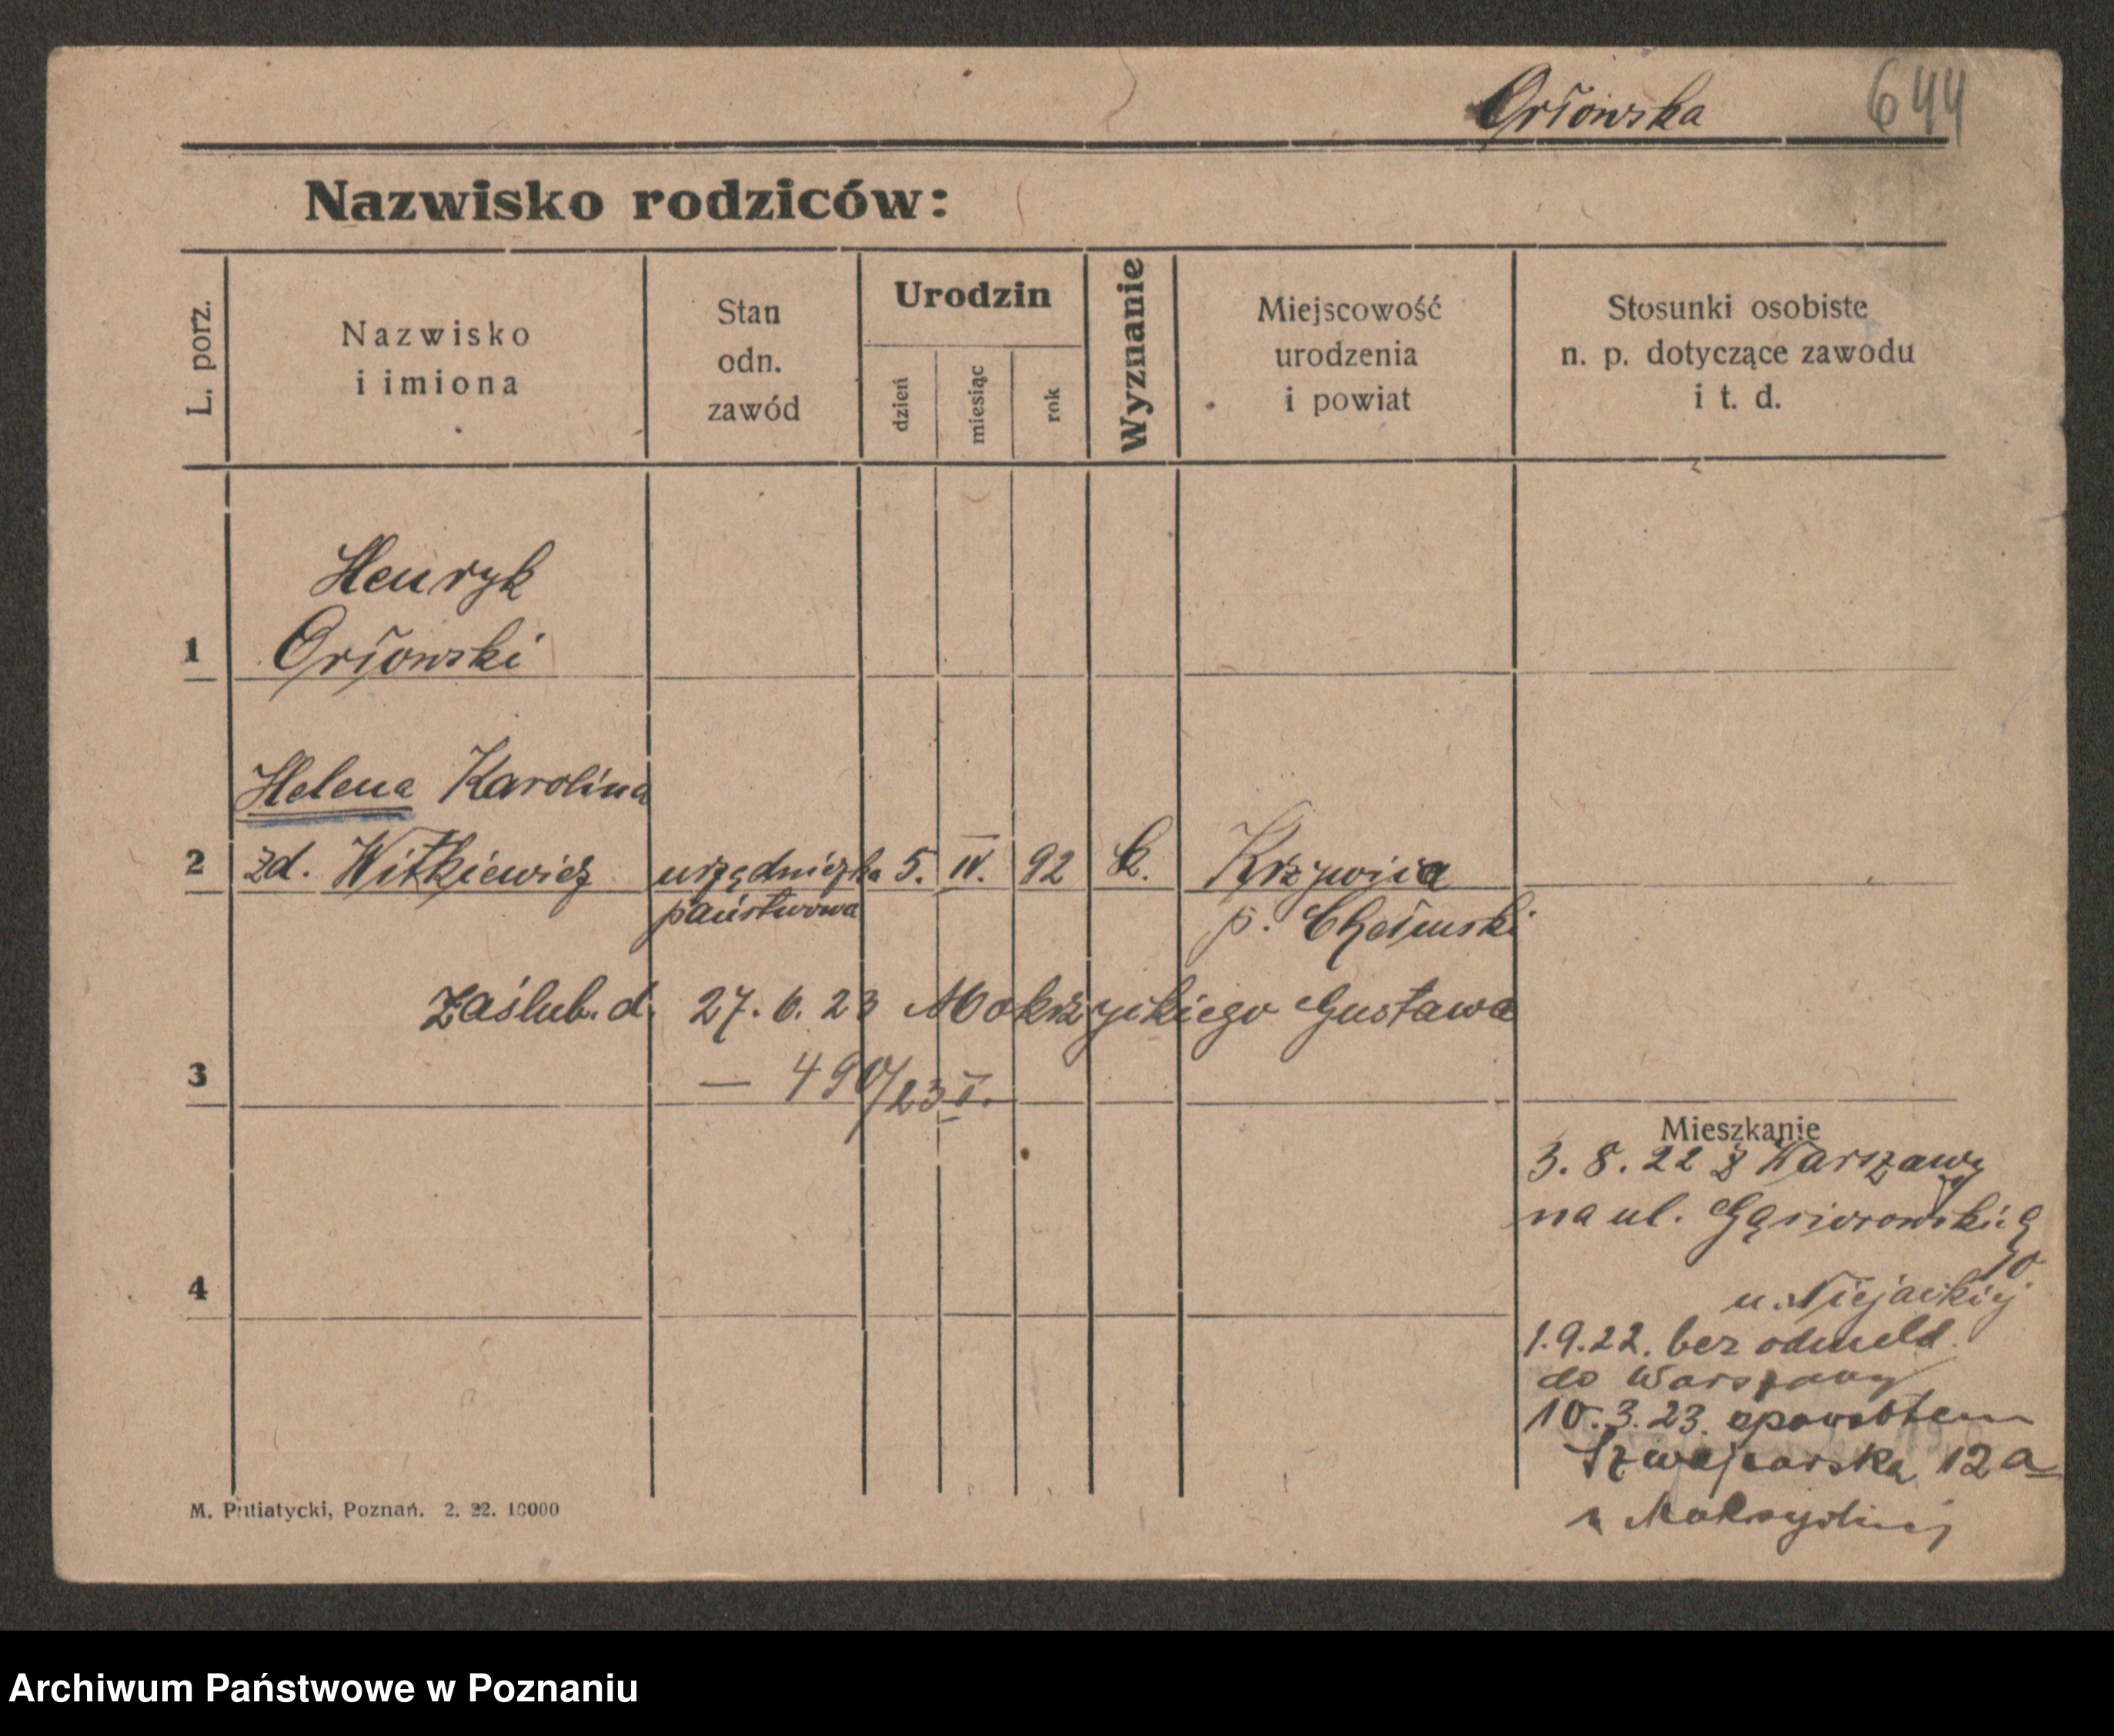 Orłowska 644
Nazwisko rodziców:
L. porz.
Nazwisko
i imiona
Stan
odn.
zawód
Urodzin
dzień
miesiąc
rok
Wyznanie
Miejscowość
urodzenia
i powiat
Stosunki osobiste
n. p. dotyczące zawodu
i t. d.
Henryk
1 Orłowski
Helena Karolina
2 zd. Witkiewicz urzędniczka 5. IV. 92 k.
państwowa p. Chełmski
zaślub. d. 27. 6. 23 Mokrzyckiego Gustawa
3 — 490/23 I.
Mieszkanie
3. 8. 22 z Warszawy
na ul. Gąsiorowskich
10
4 u.
1.9.22. bez odmeld.
do Warszawy
10.3.23. spowrotem
Szwajcarska 12a
M. Putiatycki, Poznań. 2. 22. 10000
Archiwum Państwowe w Poznaniu